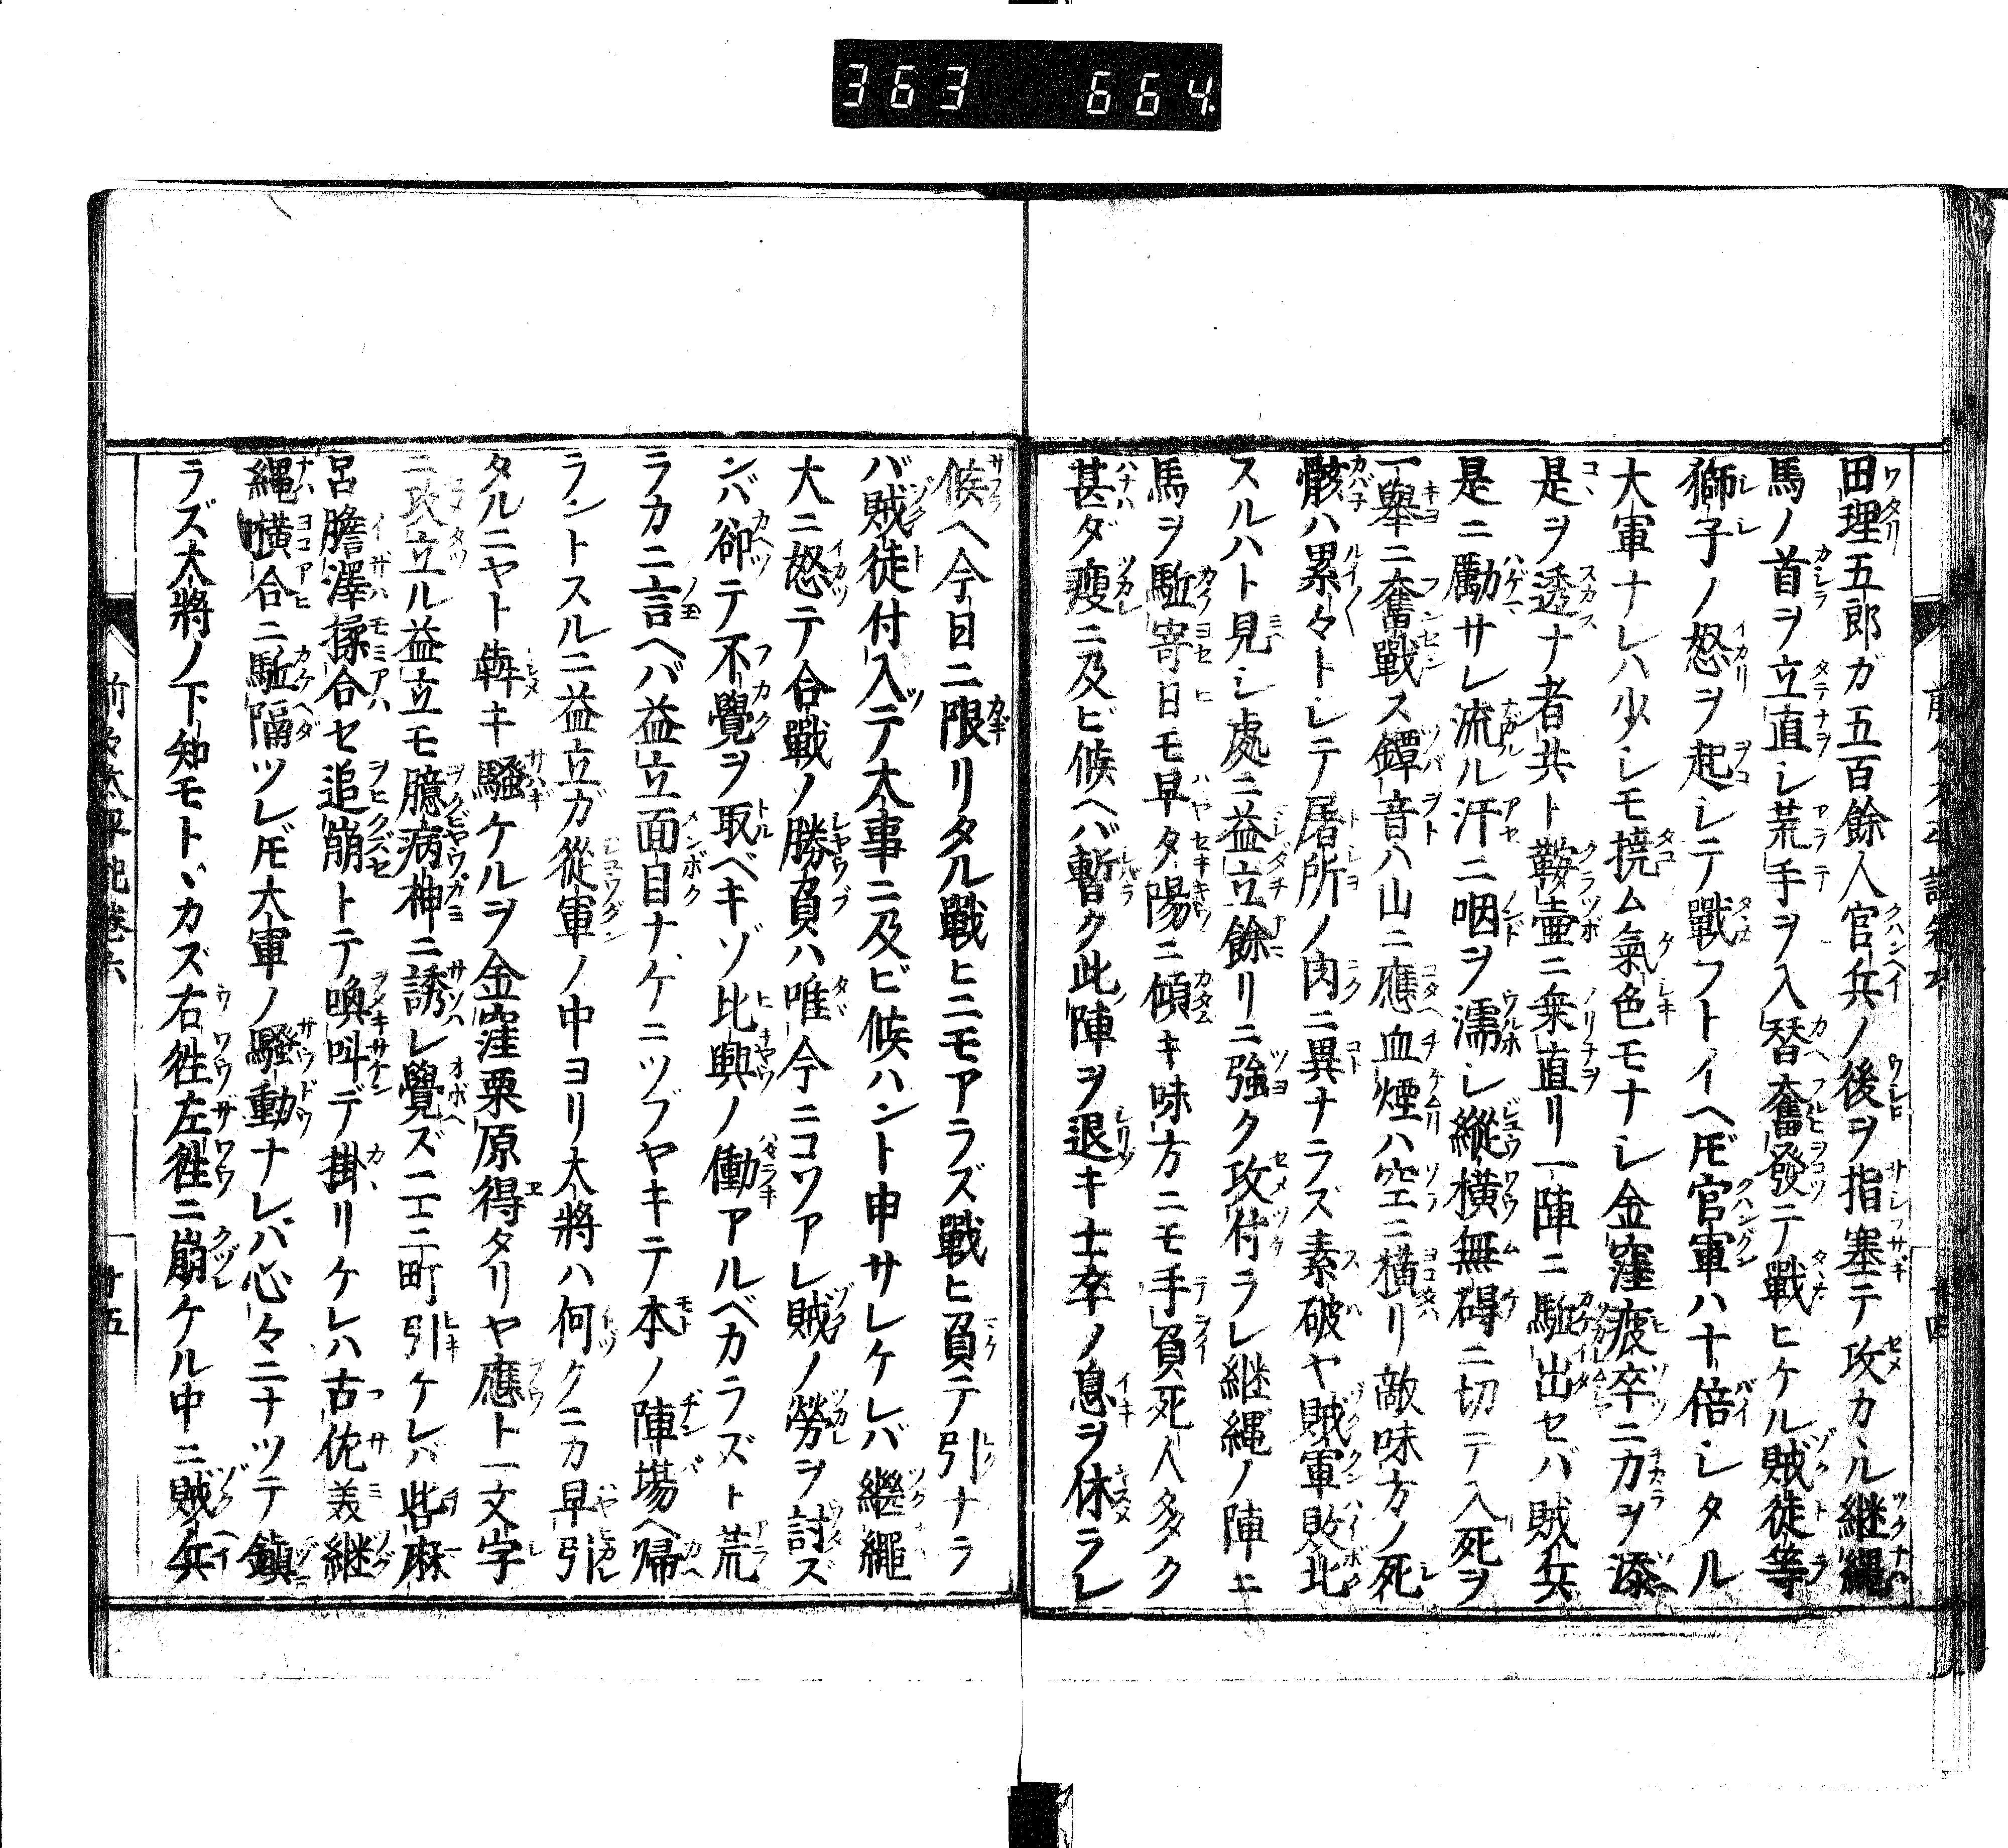 363 664.
田理五郎ガ五百餘人官兵ノ後ヲ指塞テ攻カヽル継縄
馬ノ首ヲ立直シ荒手ヲ入替奮發テ戰ヒケル賊徒等
獅子ノ怒ヲ起シテ戰フトイヘ𪜈官軍ハ十倍シタル
大軍ナレハ少シモ撓ム氣色モナシ金窪疲卒ニカヲ添
是ヲ透ナ者共ト鞍壷ニ乗直リ一陣ニ駈出セバ賊兵
是ニ勵サレ流ル汗ニ咽ヲ濡シ縱横無碍ニ切テ入死ヲ
一擧ニ奮戰ス鐔音ハ山ニ應血煙ハ空ニ横リ敵味方ノ死
骸ハ累々トシテ屠所ノ肉ニ異ナラズ素破ヤ賊軍敗北
スルハト見シ處ニ益立餘リニ強ク攻付ラレ継縄ノ陣ニ
馬ヲ駈寄日モ早タ陽ニ傾キ味方ニモ手負死人多ク
甚ダ瘦ニ及ビ候ヘバ暫ク此陣ヲ退キ士卒ノ息ヲ休ラレ
候ヘ今日ニ限リタル戰ヒニモアラズ戰ヒ負テ引ナラ
バ賊徒付入テ大事ニ及ビ候ハント申サレケレバ繼繩
大ニ怒テ合戰ノ勝負ハ唯今ニコソアレ賊ノ勞ヲ討ズ
ンバ卻テ不覺ヲ取ベキゾ比興ノ働アルベカラズト荒
ラカニ言ヘバ益立面目ナケニツブヤキテ本ノ陣場ヘ帰
ラントスルニ益立ガ從軍ノ中ヨリ大將ハ何クニカ早引
タルニヤト犇キ騒ケルヲ金窪栗原得タリヤ應ト一文字
ニ攻立ル益立モ臆病神ニ誘レ覺ズ二三町引ケレバ呰麻
呂膽澤揉合セ追崩トテ喚叫デ掛リケレハ古佐美継
縄横合ニ駈隔ツレ𪜈大軍ノ騒動ナレバ心々ニナツテ鎮
ラズ大將ノ下知モトヾカズ右徃左徃ニ崩ケル中ニ賊兵
前々太平記卷六
廿五